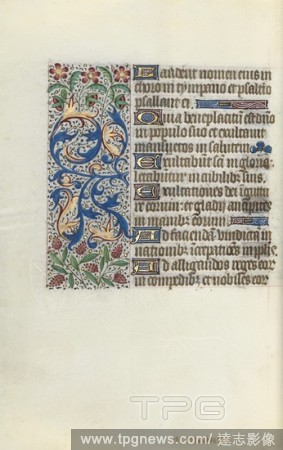 Laudent nomen eius in
choro in tympano et psalterio
psallant ei.
Quia beneplacitū est dño
in populo suo et exultauit
mansuetos in salutem
Exultabūt sc̄i in gloria
letabūtur in cubilib; suis.
Exultationes dei ī gutture
eorum: et gladii ancipites
in manib; eorum.
Ad faciendā vindictā in
nationib; īcrepatiōes in pplīs
Ad alligandos reges eor
in compedib; et nobiles eor
TPG
www.tpgnews.com/達志影像